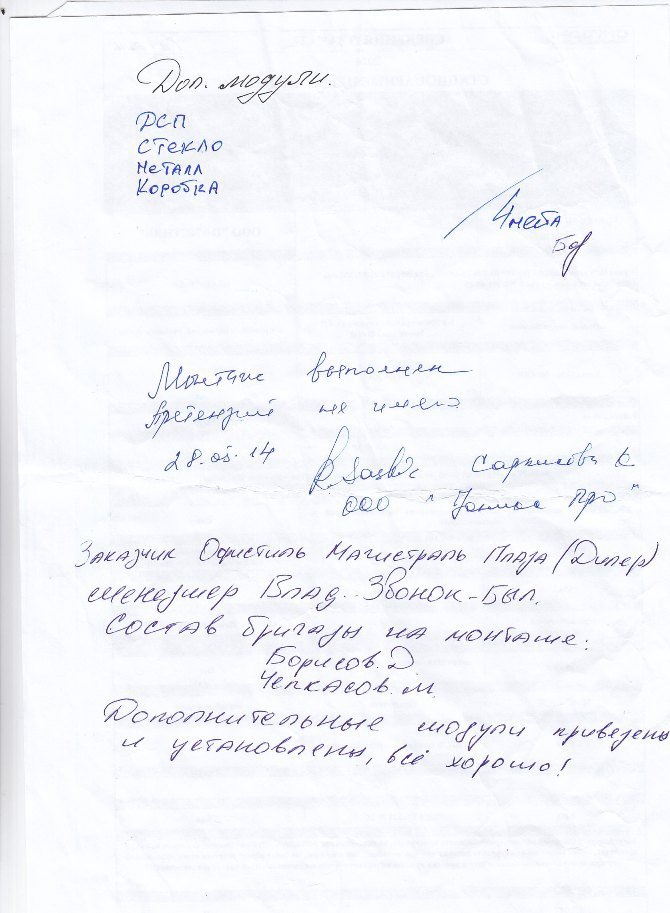 Доп. модули.
ДСП
СТЕКЛО
МЕТАЛЛ
КОРОБКА
4 места
Монтаж выполнен
претензий не имею
28.05.14
ООО " Про"
Заказчик Офистиль Магистраль Плаза (Дилер)
менеджер Влад. Звонок-Был.
Состав бригады на монтаже:
Борисов.Д
Чепкасов.М.
Дополнительные модули привезены
и установлены, всё хорошо!